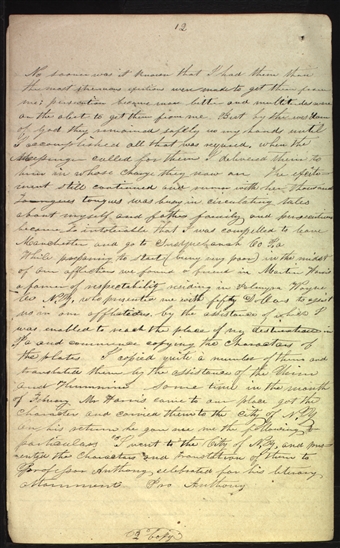 12
No sooner was it known that I had them than
the most strenious exertions were made to get them from
me; persecution became more bitter and multitudes were
on the alert to get them from me. But by the wisdom
of God they remained safely in my hands until
I accomplished all that was required, when the
Messenger called for them I delivered them to
him in whose charge they now are. The excite-
ment still continued and rumor with her thousand
tongues was busy in circulating tales
about myself and fathers family, and persecution
became so intolerable that I was compelled to leave
Manchester and go to Susquehanah Co Pa
While preparing to start (being very poor) in the midst
of our afflictions we found a friend in Martin Harris
a farmer of respectability residing in Palmyra Wayne
Co. N.Y, who presented me with fifty Dollars to assist
us in our afflictions, by the assistance of which I
was enabled to reach the place of my destination in
Pa and commenced copying the Characters of
the plates I copied quite a number of them and
translated them by the assistance of the Urim
and Thummim Some time in the month
of Febuary Mr Harris came to our place got the
Character and carried them to the city of N.Y,
on his return he gave me the following
particulars "I went to the City of N.Y, and pre-
sented the Characters and translation of them to
Professor Anthony celebrated for his literary
attainments Pro Anthony
2 Copy